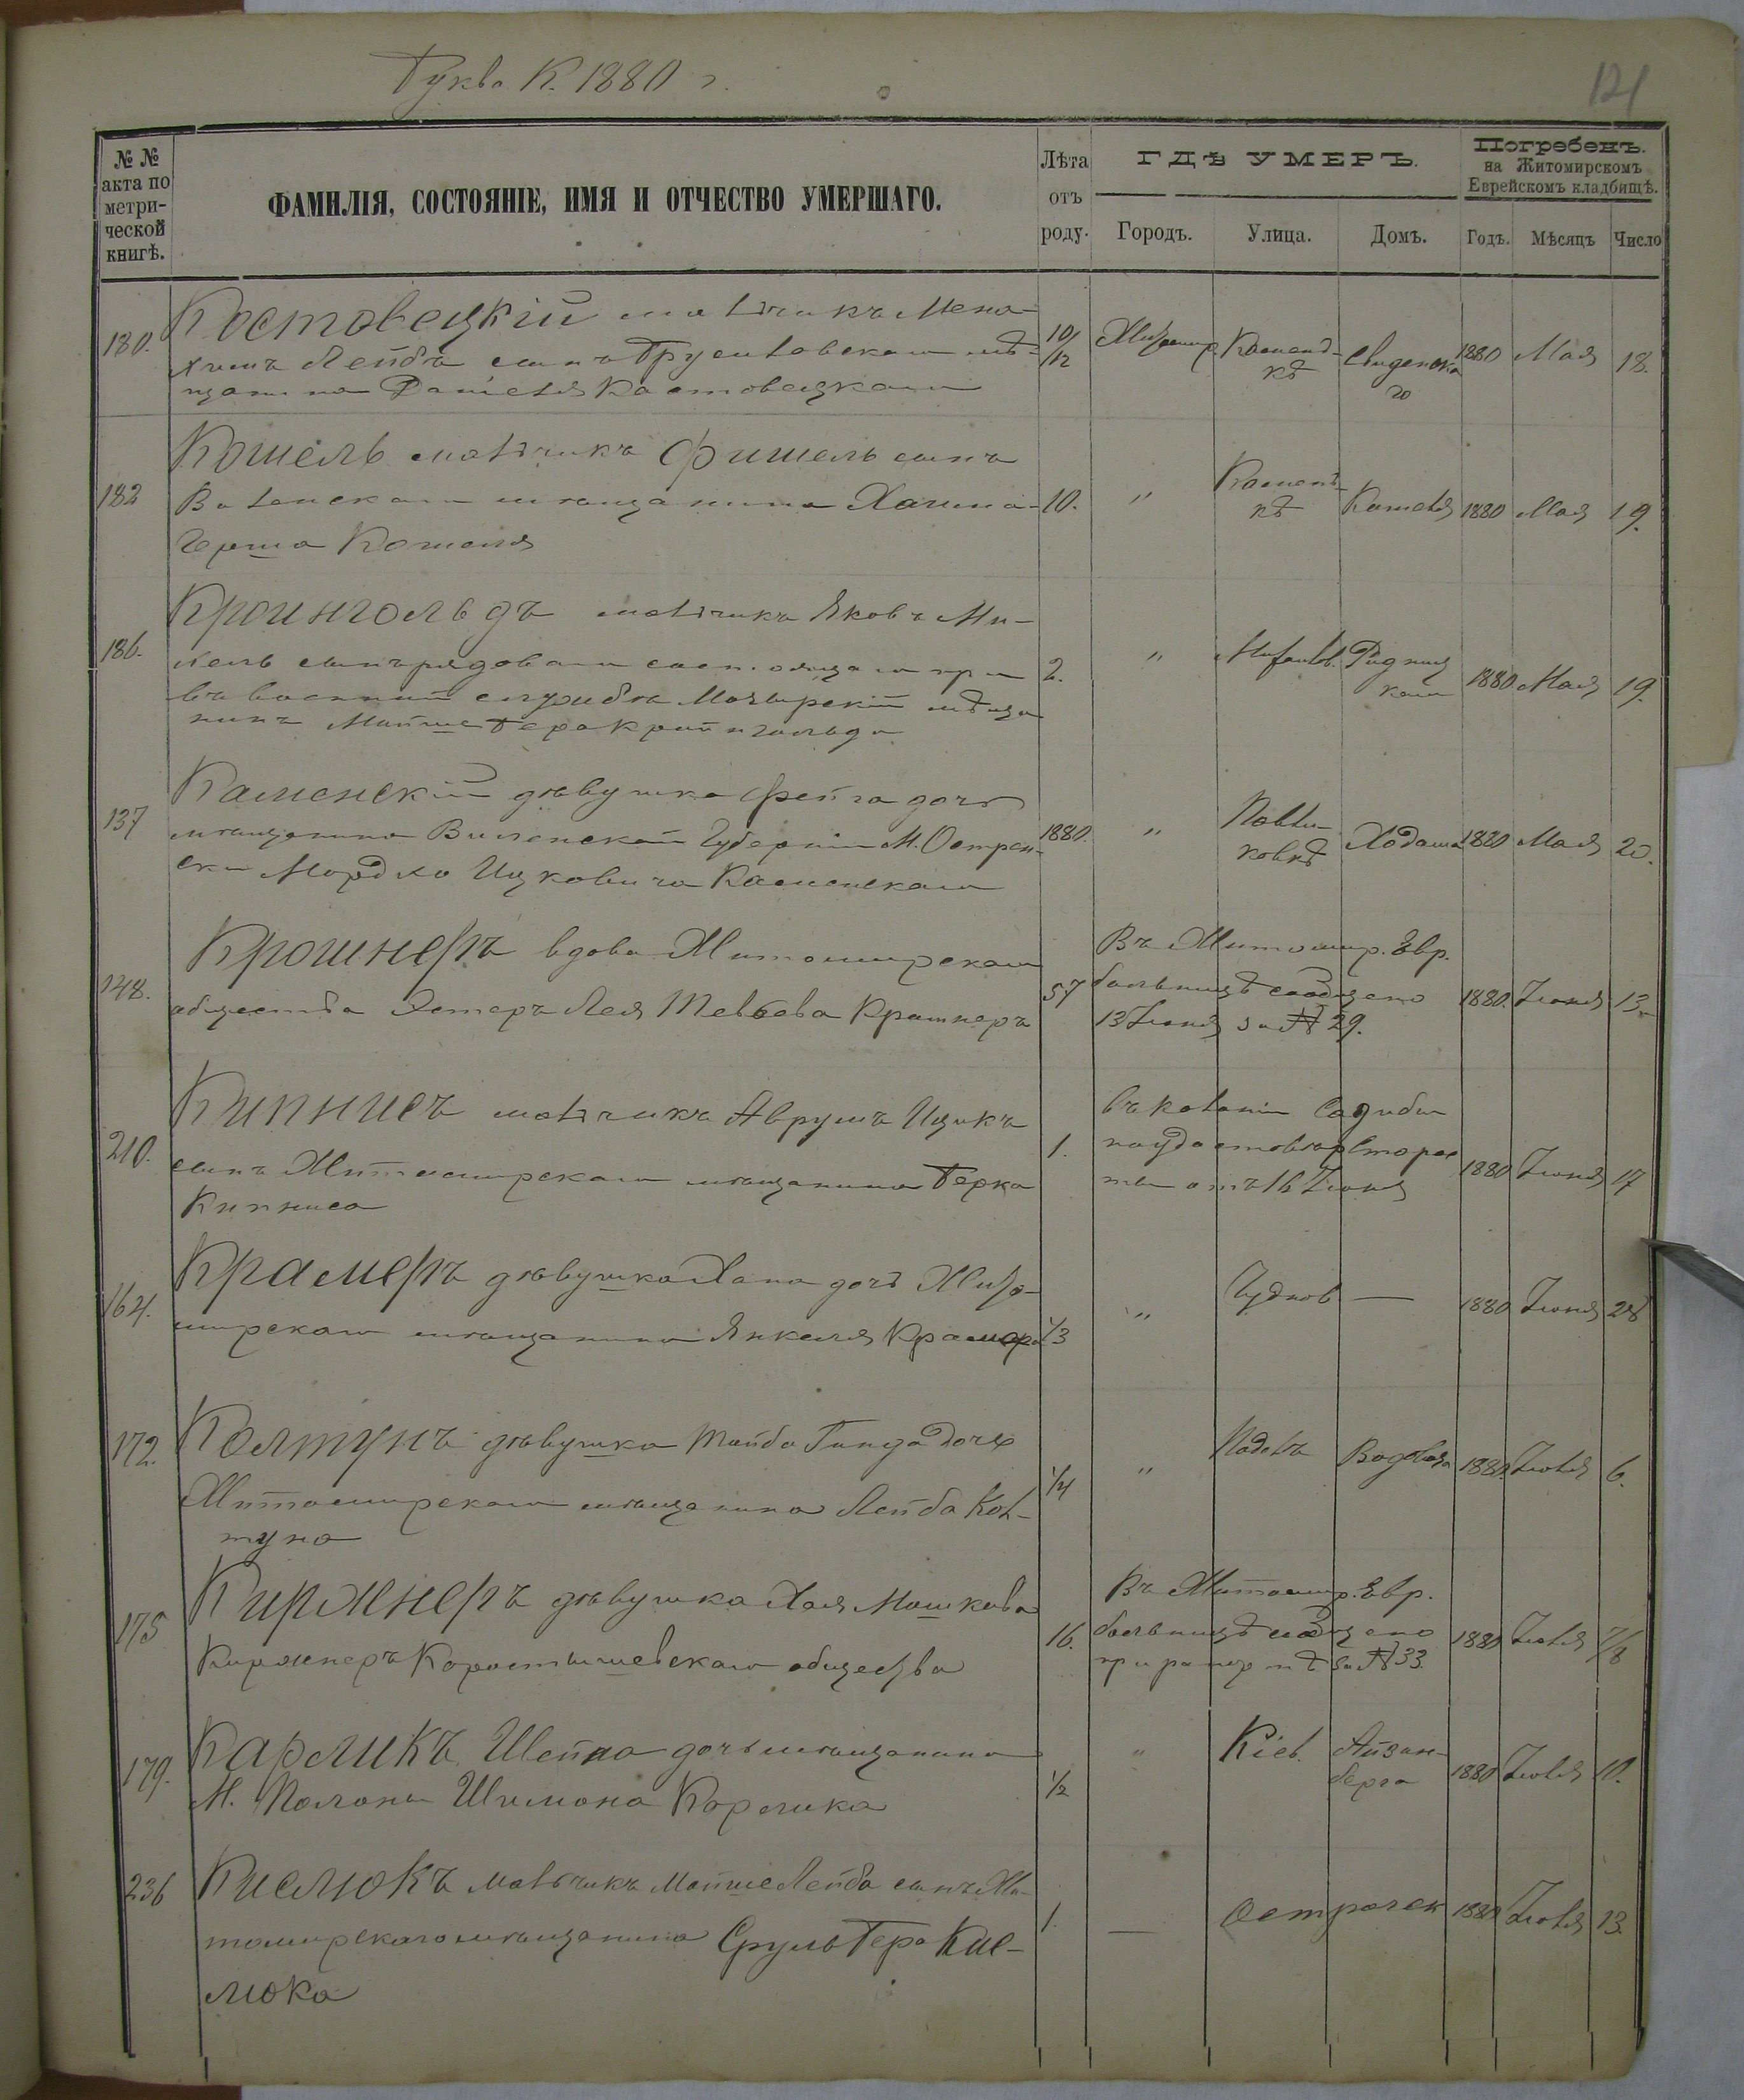 Буква К. 1880 г.
121
№ №
акта по
метри-
ческой
книгѣ.
ФАМИЛІЯ, СОСТОЯНІЕ, ИМЯ И ОТЧЕСТВО УМЕРШАГО.
Лѣта
отъ
роду.
ГДѢ УМЕРЪ.
Городъ. Улица. Домъ.
Погребенъ.
на Житомирскомъ
Еврейскомъ кладбищѣ.
Годъ. Мѣсяцъ Число
180. Костовецкій мальчикъ Мена-
химъ Лейба сынъ мѣ-
щанина Даніеля Костовецкаго
10/12 Житомир. 1880 Мая 18.
182 Кошель мальчикъ Фишель сынъ
мѣщанина Хаима-
Герша Кошеля
10. " Кошеля 1880 Мая 19.
186. Кроингольдъ мальчикъ Яковъ Ми-
хель сынъ рядоваго
въ военной службѣ мѣща
нинъ
2. " 1880 Мая 19.
137 Каменскій дѣвушка Фейга дочь
мѣщанина Виленской Губерніи М. Острин-
ски Мордко Ицковича Каменскаго
1880. " Павли-
ковкѣ Ходаша 1880 Мая 20.
148. Крошнеръ вдова Житомирскаго
общества Эстеръ Лея Тевьева Крошнеръ
57 Въ Житомир. Евр.
больницѣ сообщено
13 Іюня за № 29.
1880. Іюня 13.
210. Кипнисъ мальчикъ Аврумъ Ицикъ
сынъ Житомирскаго мѣщанина Берка
Кипниса
1. въ колоніи
отъ 16 Іюня
1880 Іюня 17
164. Крамеръ дѣвушка Хана дочь Жито-
мирскаго мѣщанина Янкеля Крамера
1/3 " Чуднов — 1880 Іюня 28
172. Колтунъ дѣвушка Тайба Гинда дочь
Житомирскаго мѣщанина Лейба Кол-
туна
1/4 " Подолъ 1880 Іюля 6.
175 Киржнеръ дѣвушка Хая Мошкова
Киржнеръ Коростышевскаго общества
16. Въ Житомир. Евр.
больницѣ сообщено
при рапортѣ за № 33.
1880 Іюля 7/8
179. Карликъ Шейна дочь мѣщанина
М. Полоны Шимона Карлика
1/2 " Кіев. Айзен-
берга 1880 Іюля 11.
236 Кислюкъ мальчикъ Мойше Лейба сынъ Жи-
томирскаго мѣщанина Сруль Бера Кис-
люка
1. — 1880 Іюля 13.